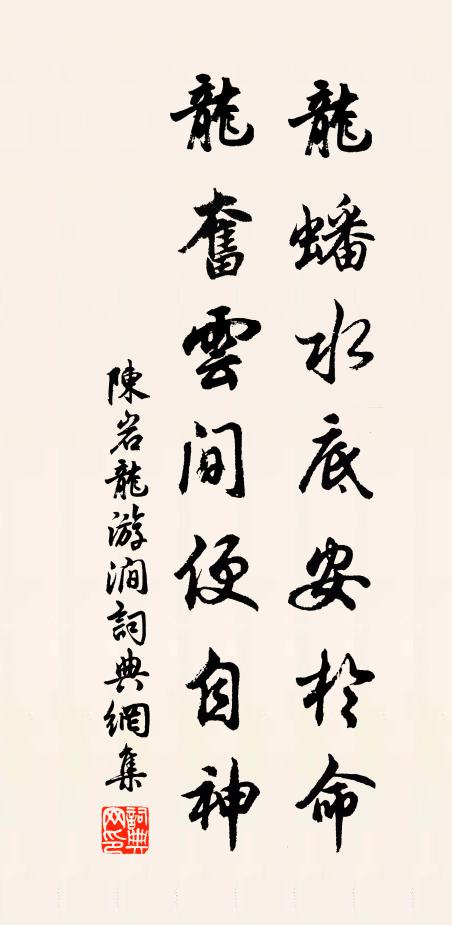 龍蟠水底安於命
龍奮雲間便自神
陳岩龍游澗詞典網集
詞典網印